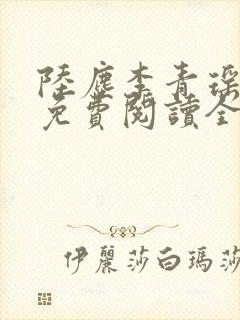 陸塵李青瑤
免費閱讀全
伊麗莎白瑪莎